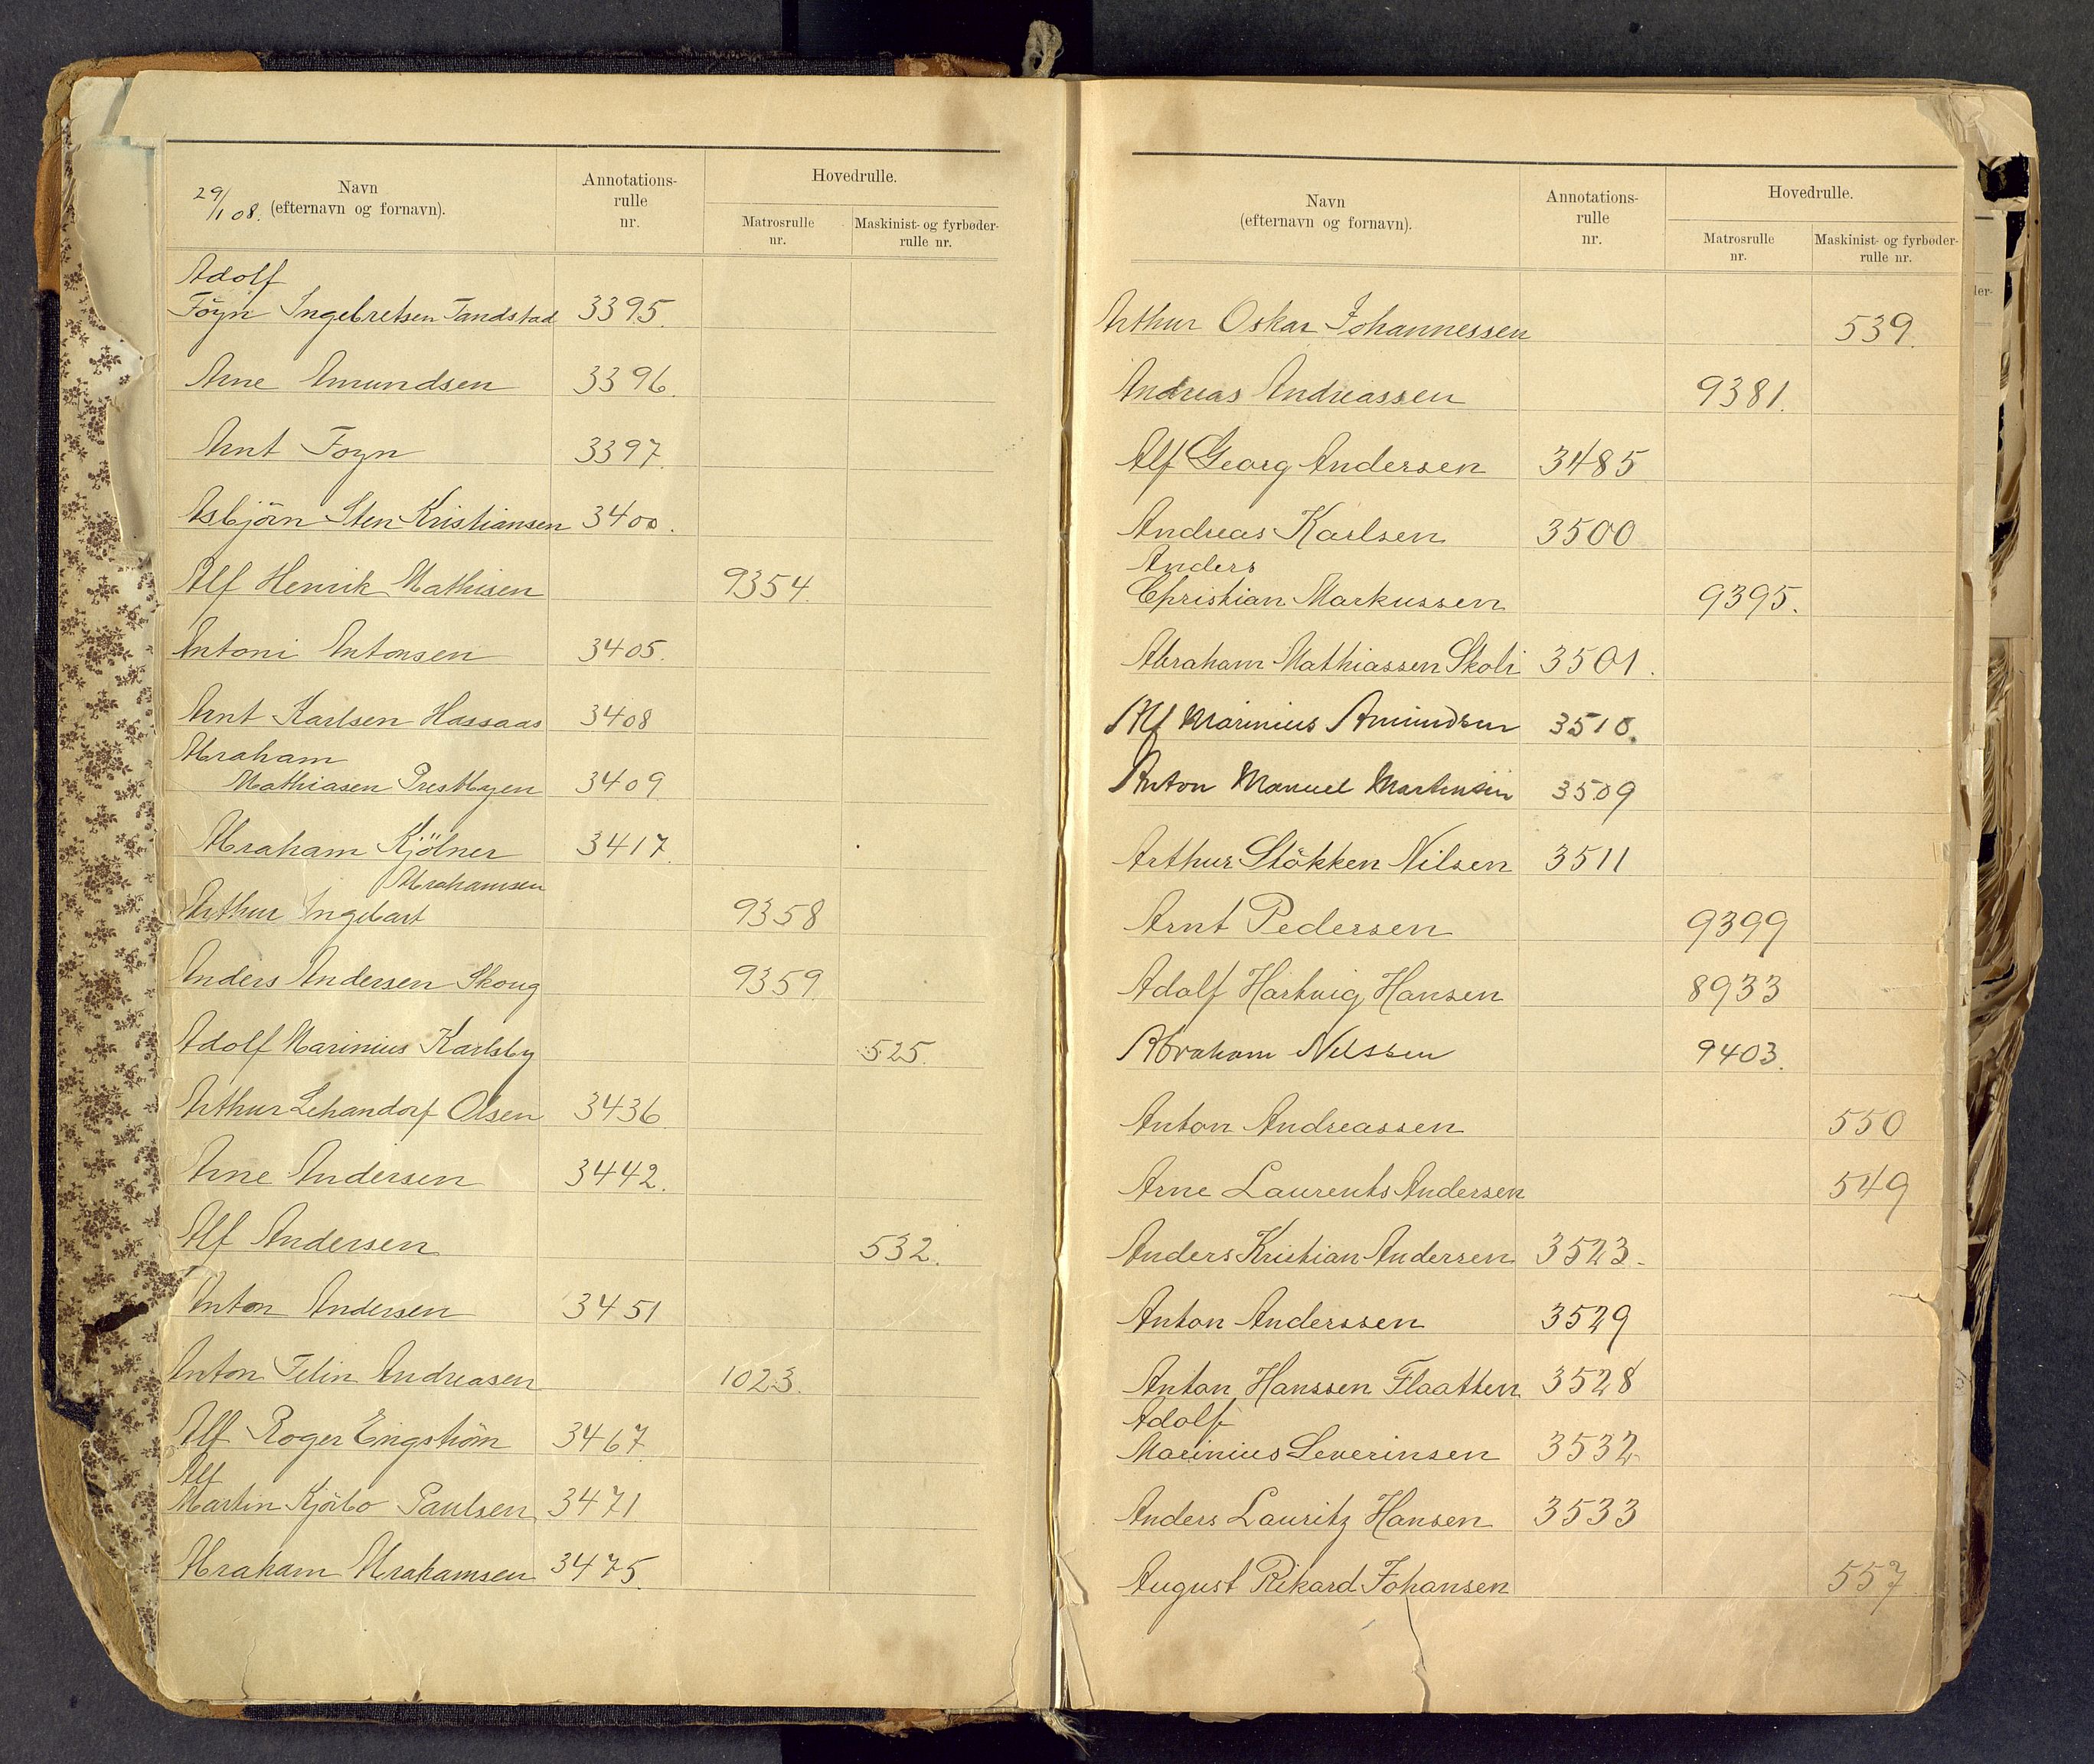 29/1 08.
Navn
(efternavn og fornavn).
Annotations-
rulle
nr.
Hovedrulle.
Matrosrulle
nr.
Maskinist- og fyrbøder-
rulle nr.
Adolf
Föyn Ingebretsen Tandstad 3395.
Arne Amundsen 3396.
Arnt Foyn 3397.
Asbjörn Sten Kristiansen 3400.
Alf Henrik Mathisen 9354.
Antoni Antonsen 3405.
Arnt Karlsen Hassaas 3408
Abraham
Mathiasen Prestbyen 3409
Abraham Kjölner 3417.
Abrahamsen
Arthur Ingebart 9358
Anders Andersen Skoug 9359
Adolf Marinius Karlsby 525.
Arthur Lehandorf Olsen 3436
Arne Andersen 3442.
Alf Andersen 532.
Anton Andersen 3451
Anton Andreasen 1023.
Alf Roger Engström 3467
Alf
Martin Kjörbo Paulsen 3471
Abraham Abrahamsen 3475.
Navn
(efternavn og fornavn).
Annotations-
rulle
nr.
Hovedrulle.
Matrosrulle
nr.
Maskinist- og fyrbøder-
rulle nr.
Arthur Oskar Johannessen 539.
Andreas Andreassen 9381.
Alf Georg Andersen 3485
Andreas Karlsen 3500
Anders
Christian Markussen 9395.
Abraham Mathiassen Skoli 3501.
Alf Marinius Amundsen 3510.
Anton Manuel Martinsen 3509
Arthur Stökken Nilsen 3511
Arnt Pedersen 9399
Adolf Hartvig Hansen 8933
Abraham Nilssen 9403.
Anton Andreassen 550
Arne Laurents Andersen 549
Anders Kristian Andersen 3523.
Anton Anderssen 3529
Anton Hanssen Flaatten 3528
Adolf
Marinius Severinsen 3532
Anders Lauritz Hansen 3533
August Rikard Johansen 557